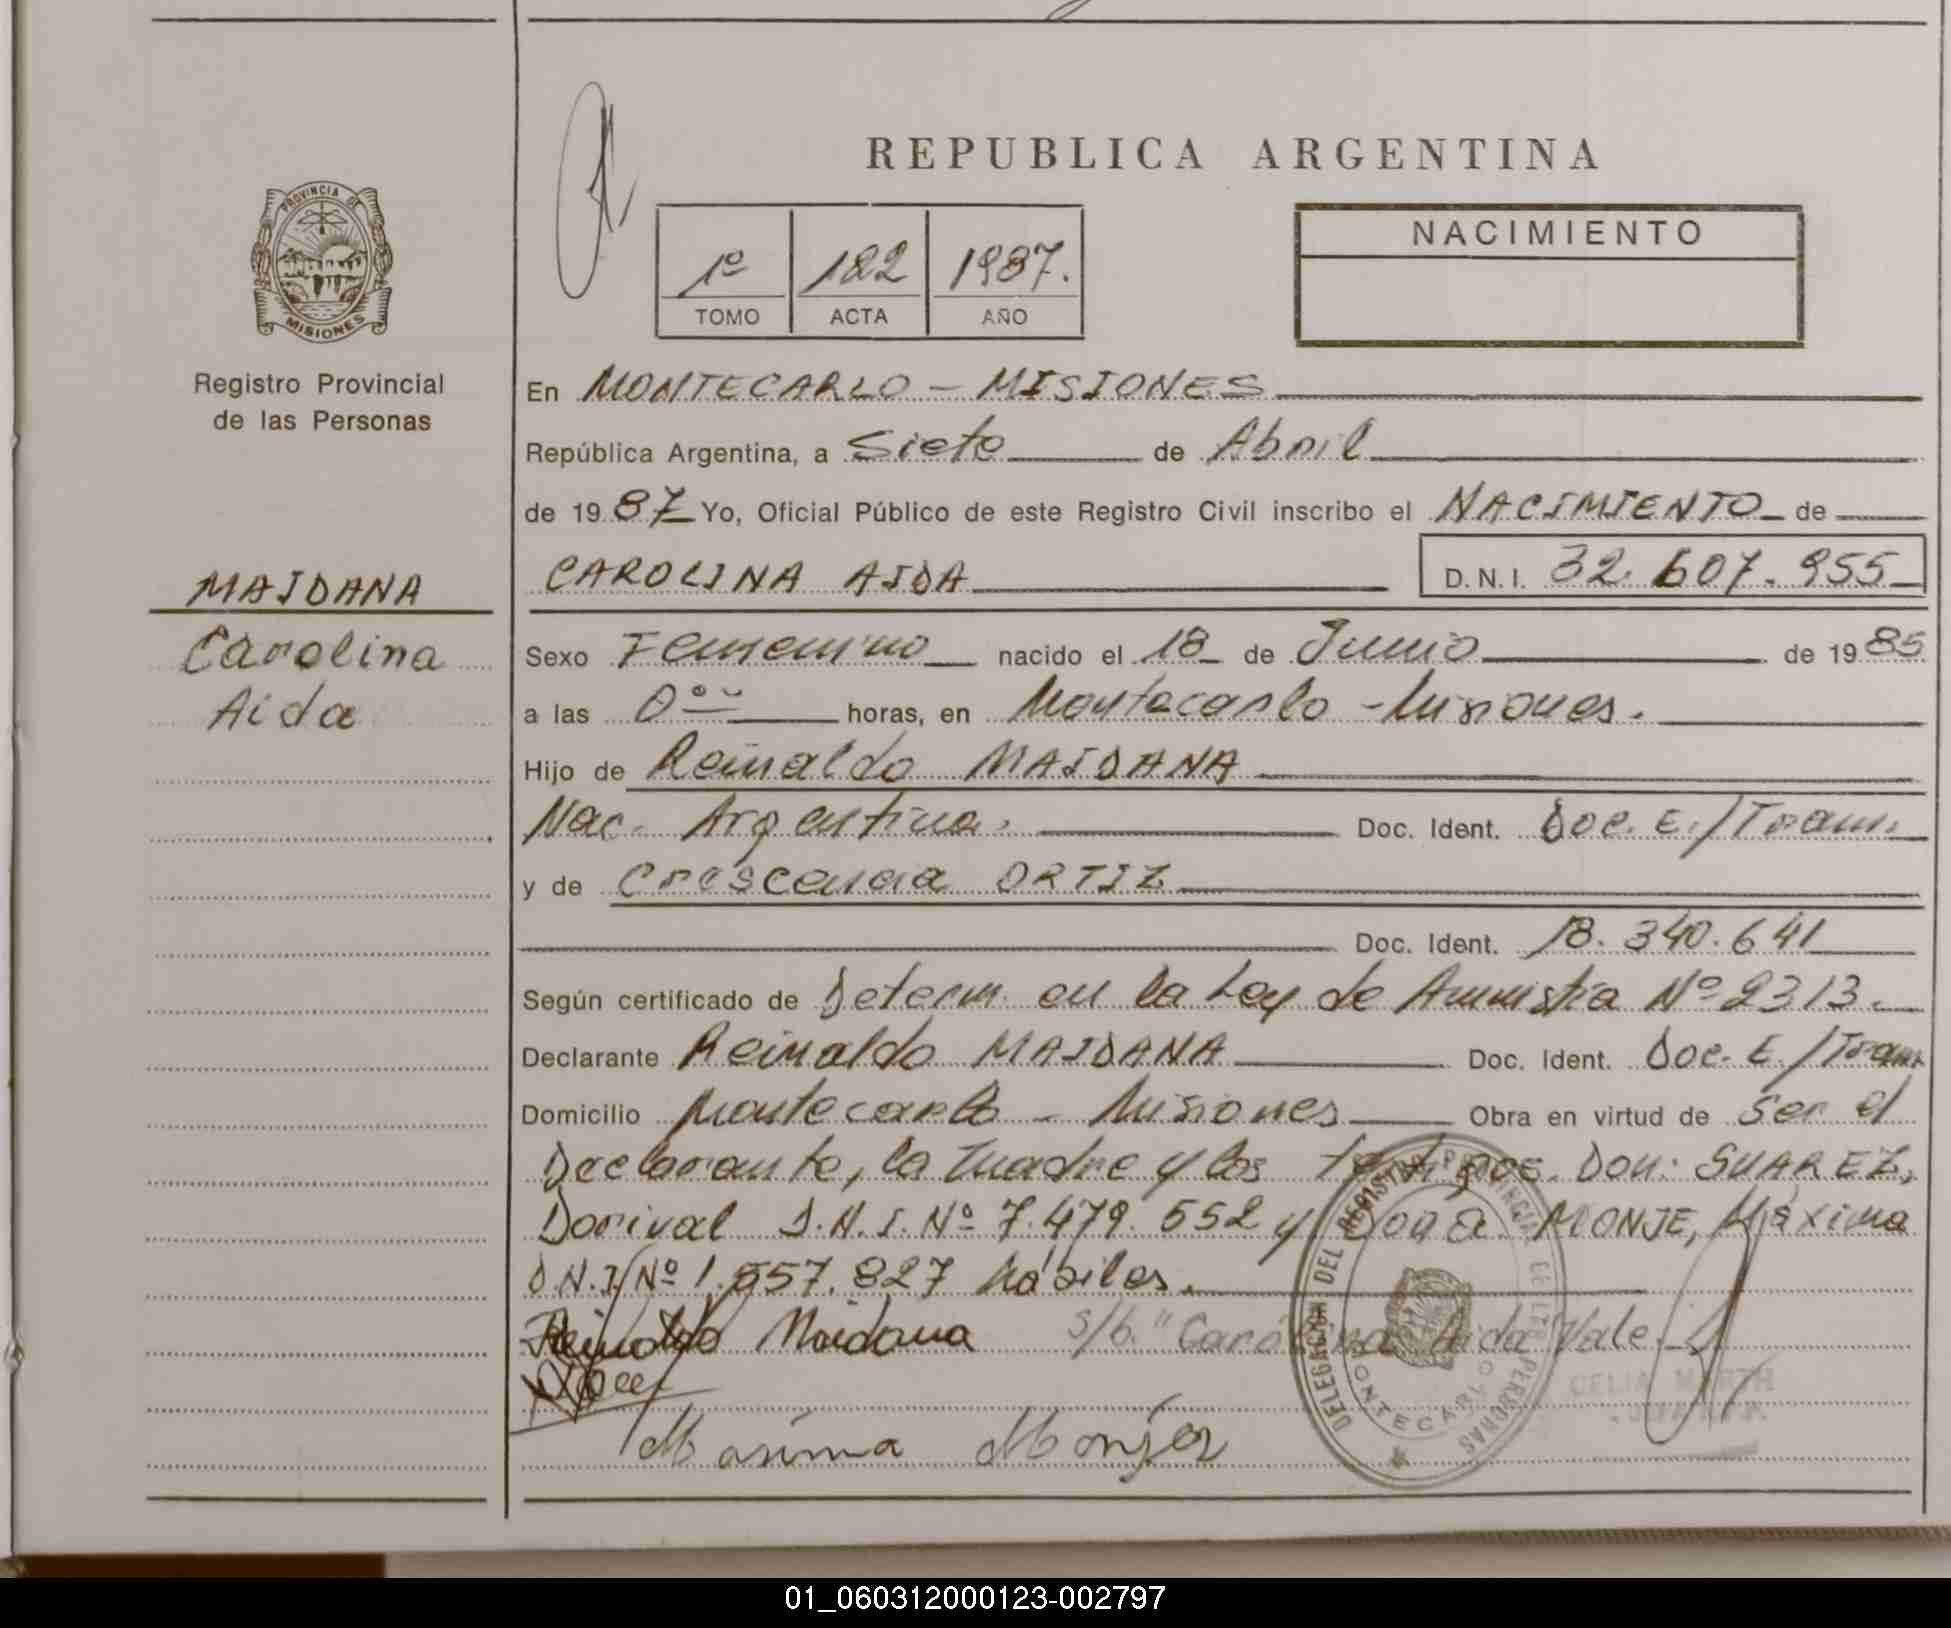 REPUBLICA ARGENTINA
PROVINCIA DE
MISIONES
Registro Provincial
de las Personas
1º 182 1987.
TOMO ACTA AÑO
NACIMIENTO
En MONTECARLO - MISIONES
República Argentina, a Siete de Abril
de 1987 Yo, Oficial Público de este Registro Civil inscribo el NACIMIENTO de
MAIDANA
Carolina
Aida
CAROLINA AIDA D.N.I. 32.607.955
Sexo Femenino nacido el 18 de Junio de 1985
a las 0 horas, en Montecarlo - Misiones.
Hijo de Reinaldo MAIDANA
Nac. Argentina. Doc. Ident. Doc. E./Tram.
y de Crescencia ORTIZ
Doc. Ident. 18.340.641
Según certificado de Determ. en la Ley de Amnistia Nº 2313.
Declarante Reinaldo MAIDANA Doc. Ident. Doc. E./Tram.
Domicilio Montecarlo - Misiones Obra en virtud de Ser el
Declarante, la madre y los testigos. Don: SUAREZ,
Dorival D.N.I. Nº 7.479.552 y Doña MONJE, Máxima
D.N.I. Nº 1.557.827 hábiles.
Reinaldo Maidana s/b. "Carolina Aida Vale.
Masima Monjes
DELEGACION DEL REGISTRO PROVINCIAL DE LAS PERSONAS
MONTECARLO
CELIA MARTH
01_060312000123-002797